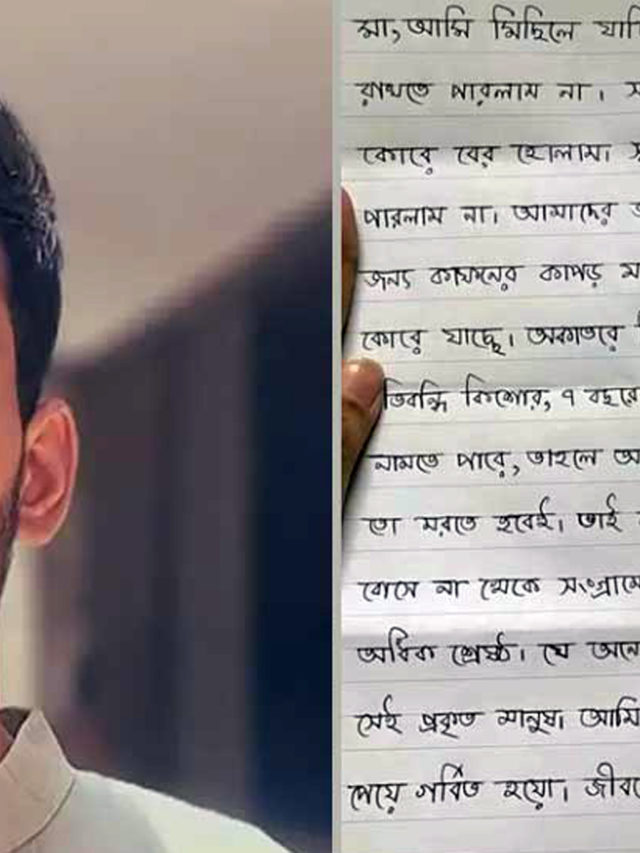 মা, আমি মিছিলে যাচ্ছি
রাখতে পারলাম না।
কোরে বের হোলাম।
পারলাম না। আমাদের
জন্য কাফনের কাপড়
কোরে যাচ্ছে। অকাতরে
কিশোর, ৭ বছরের
নামতে পারে, তাহলে
তো মরতে হবেই। তাই
বোসে না থেকে সংগ্রামে
অধিক শ্রেষ্ঠ। যে
সেই প্রকৃত মানুষ। আমি
পেয়ে গর্বিত হয়ো।